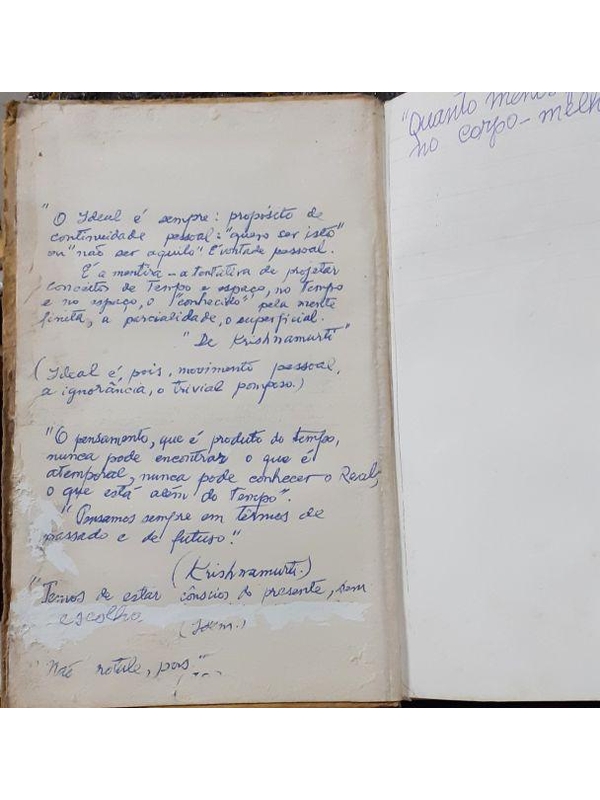 "O Ideal é sempre: propósito de
continuidade pessoal: "quero ser isto"
ou "não ser aquilo" É vontade pessoal.
É a mentira - a tentativa de projetar
conceitos de Tempo e espaço, no Tempo
e no espaço, o "conhecido" pela mente
finita, a parcialidade, o superficial.
"De Krishnamurti"
(Ideal é, pois, movimento pessoal,
a ignorância, o trivial pomposo.)
"O pensamento, que é produto do tempo,
nunca pode encontrar o que é
atemporal, nunca pode conhecer o Real,
o que está além do Tempo".
"Pensamos sempre em têrmos de
passado e de futuro."
(Krishnamurti.)
"Temos de estar cônscios do presente, sem
escolha
(Idem.)
"Não rotule, pois"...
"Quanto menos
no corpo - melh